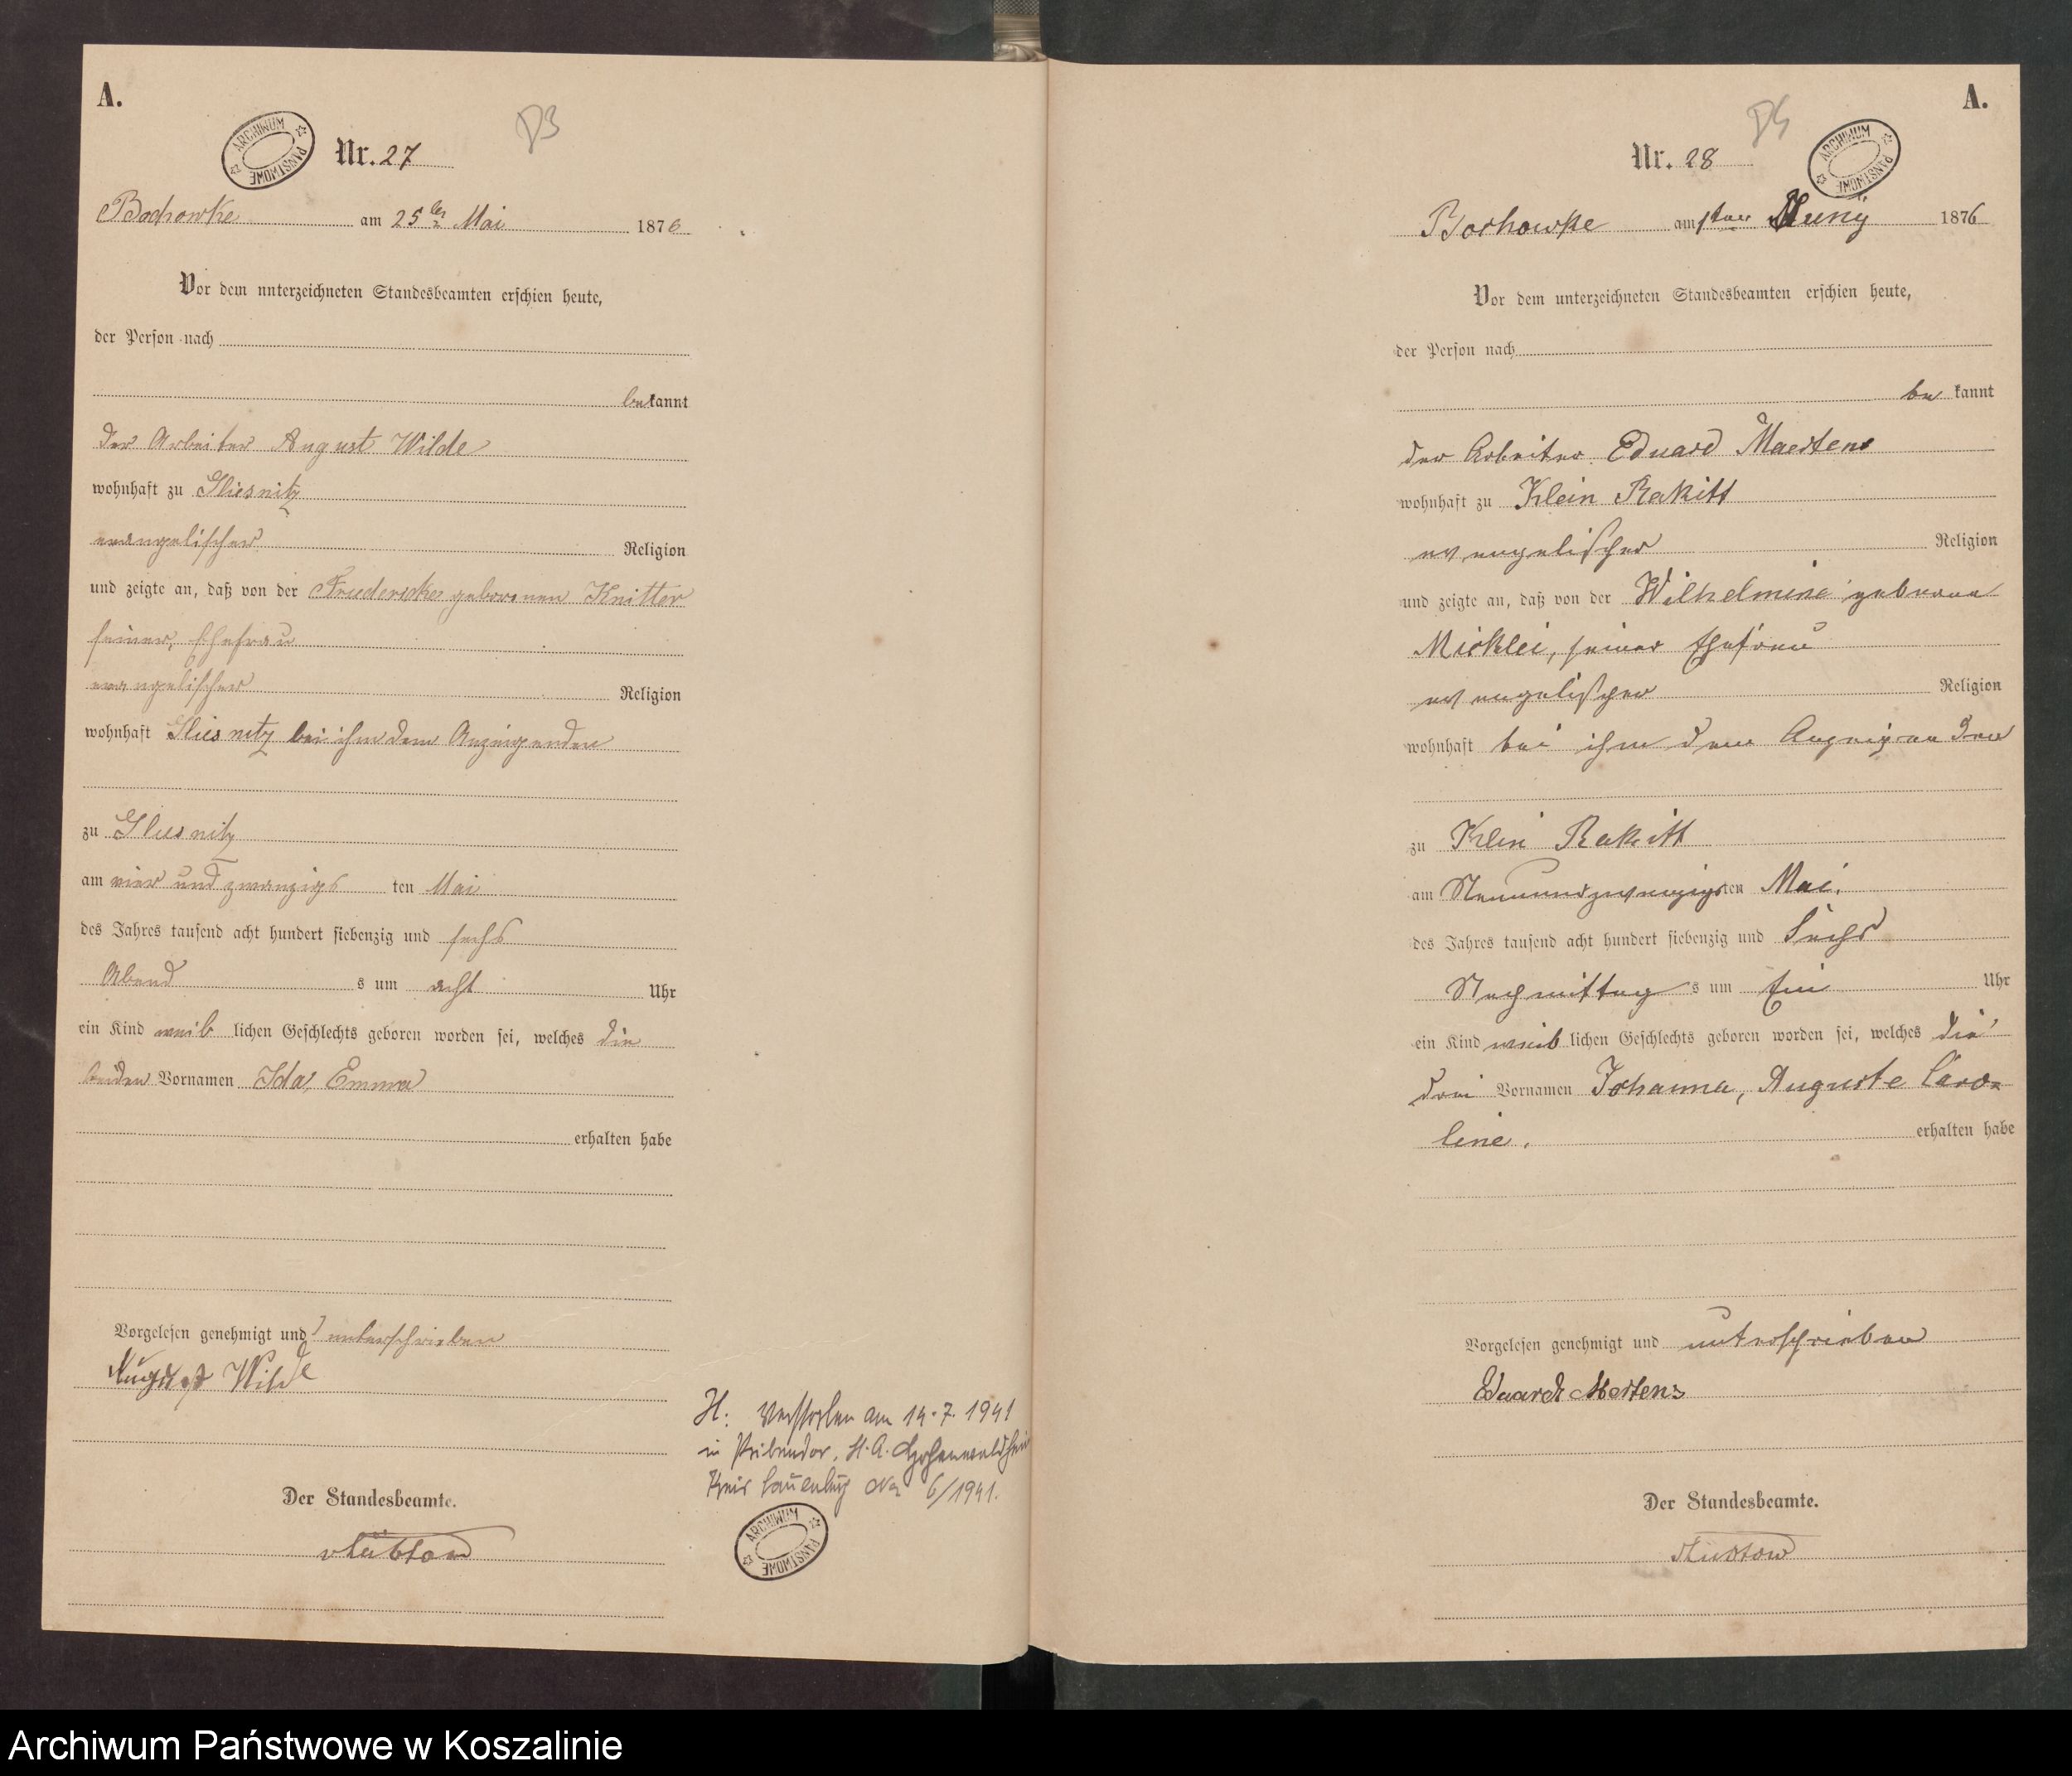 A.
ARCHIWUM PAŃSTWOWE
Nr. 27
Bochowke am 25ten Mai 1876
Vor dem unterzeichneten Standesbeamten erschien heute,
der Person nach
bekannt
der Arbeiter August Wilde
wohnhaft zu Gliesnitz
evangelischer Religion
und zeigte an, daß von der Friedericke geborenen Knitter
seiner, Ehefrau
evangelischer Religion
wohnhaft Gliesnitz bei ihm dem Anzeigenden
zu Gliesnitz
am vier und zwanzigs ten Mai
des Jahres tausend acht hundert siebenzig und sechs
Abend s um acht Uhr
ein Kind weib lichen Geschlechts geboren worden sei, welches die
beiden Vornamen Ida, Emma
erhalten habe
Vorgelesen genehmigt und unterschrieben
August Wilde
Der Standesbeamte.
H: Verstorben am 14.7.1941
in Kreis Lauenburg Nr 6/1941.
ARCHIWUM PAŃSTWOWE
A.
ARCHIWUM PAŃSTWOWE
Nr. 28
Bochowke am 1ten Juny 1876
Vor dem unterzeichneten Standesbeamten erschien heute,
der Person nach
be kannt
der Arbeiter Eduard Maertens
wohnhaft zu Klein Rakitt
evangelischer Religion
und zeigte an, daß von der Wilhelmine geborene
seiner Ehefrau
evangelischer Religion
wohnhaft bei ihm dem Anzeigenden
zu Klein Rakitt
am Neunundzwanzigsten Mai.
des Jahres tausend acht hundert siebenzig und Sechs
Nachmittag s um Ein Uhr
ein Kind weib lichen Geschlechts geboren worden sei, welches die
drei Vornamen Johanna, Auguste Caro-
line. erhalten habe
Vorgelesen genehmigt und unterschrieben
Eduard Mertens
Der Standesbeamte.
Archiwum Państwowe w Koszalinie